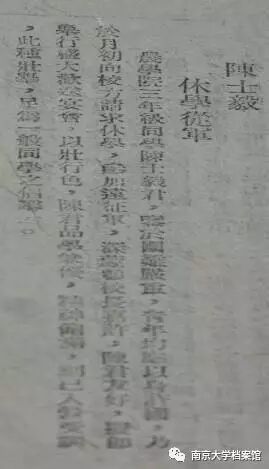 陳士毅
休學從軍
農學院三年級同學陳士毅君，鑒於國難嚴重，青年均應以身許國，乃
於月初向校方請求休學，參加遠征軍，深蒙顧校長嘉許，陳君友好，
舉行盛大歡送宴會，以壯行色，陳君品學兼優，
，此種壯舉，足為一般同學之信舉。
南京大学档案馆